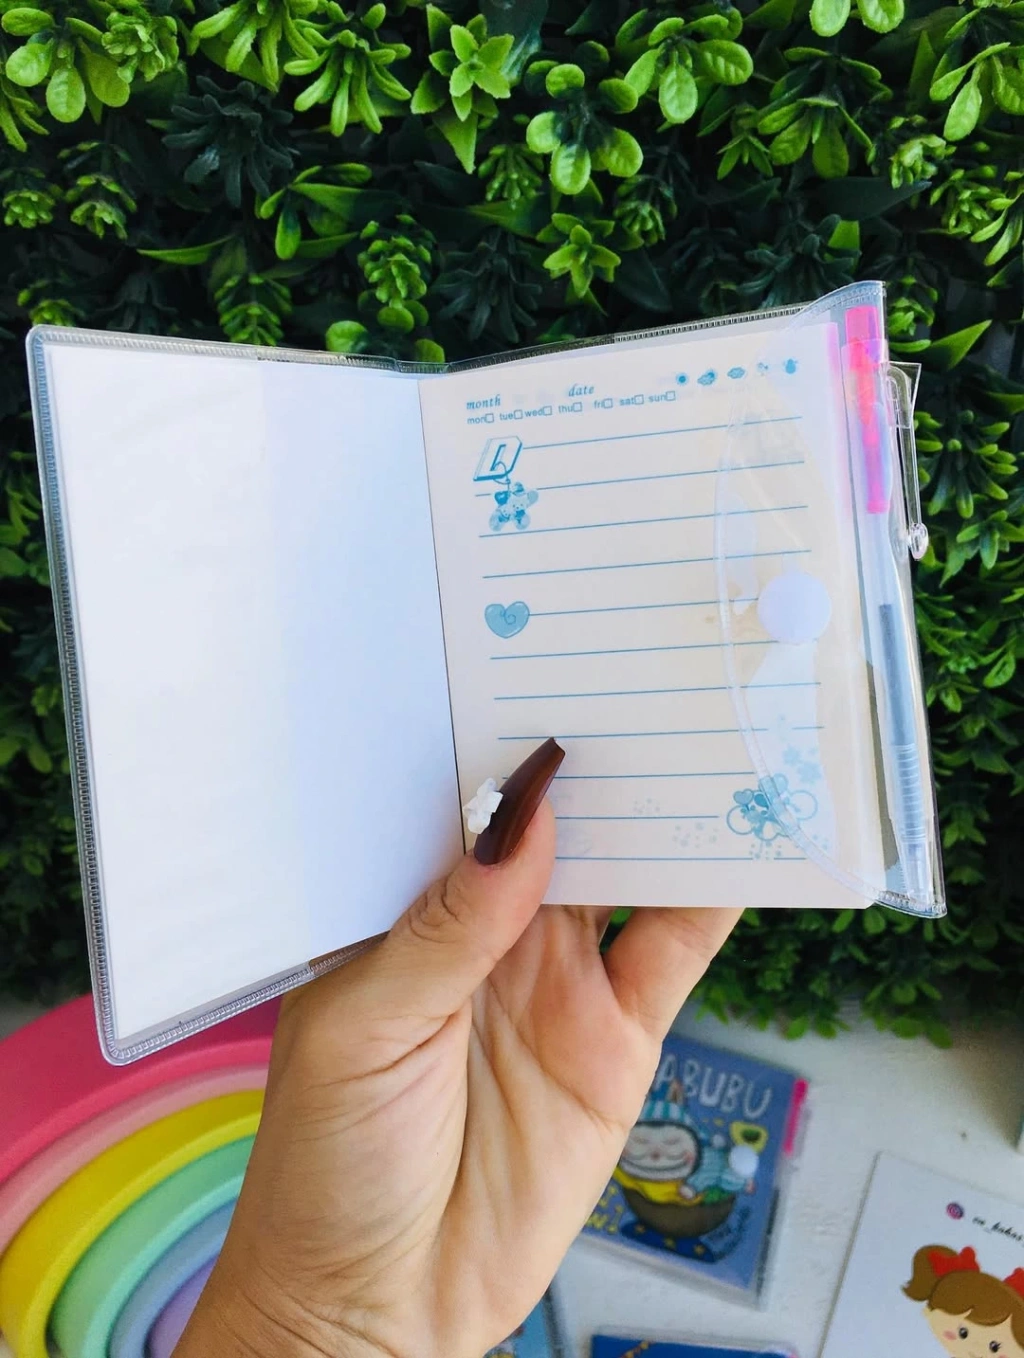 month date
mon tue wed thu fri sat sun
ABUBU